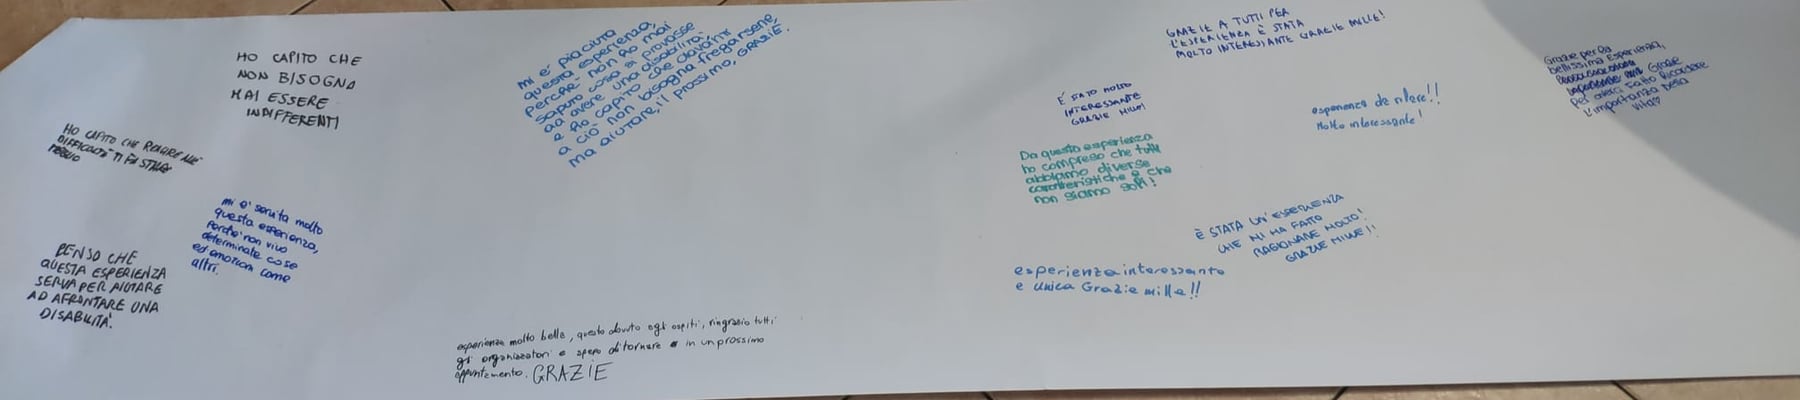 HO CAPITO CHE
NON BISOGNA
MAI ESSERE
INDIFFERENTI
HO CAPITO CHE REAGIRE NELLE
DIFFICOLTÀ TI FA STARE
MEGLIO
mi e' servita molto
questa esperienza,
perche' non vivo
determinate cose
ed emozioni come
altri.
PENSO CHE
QUESTA ESPERIENZA
SERVA PER AIUTARE
AD AFRONTARE UNA
DISABILITÀ.
mi e' piaciuta
questa esperienza,
perche' non ho mai
saputo cosa si provasse
ad avere una disabilità.
e ho capito che davanti
a ciò non bisogna fregarsene,
ma aiutare, il prossimo, GRAZIE.
esperienza molto bella, questo dovuto agli ospiti, ringrazio tutti
gli organizzatori e spero di tornare in un prossimo
appuntamento. GRAZIE
GRAZIE A TUTTI PER
L'ESPERIENZA È STATA
MOLTO INTERESSANTE GRAZIE MILLE!
È STATO MOLTO
INTERESSANTE
GRAZIE MILLE!
esperienza da rifare!!
Molto interessante!
Da questa esperienza
ho compreso che tutti
abbiamo diverse
caratteristiche e che
non siamo soli!
È STATA UN'ESPERIENZA
CHE MI HA FATTO
RAGIONARE MOLTO!
GRAZIE MILLE!!
esperienza interessante
e unica Grazie mille!!
Grazie per la
bellissima Esperienza,
Grazie
per averci fatto ricordare
L'importanza della
vita??